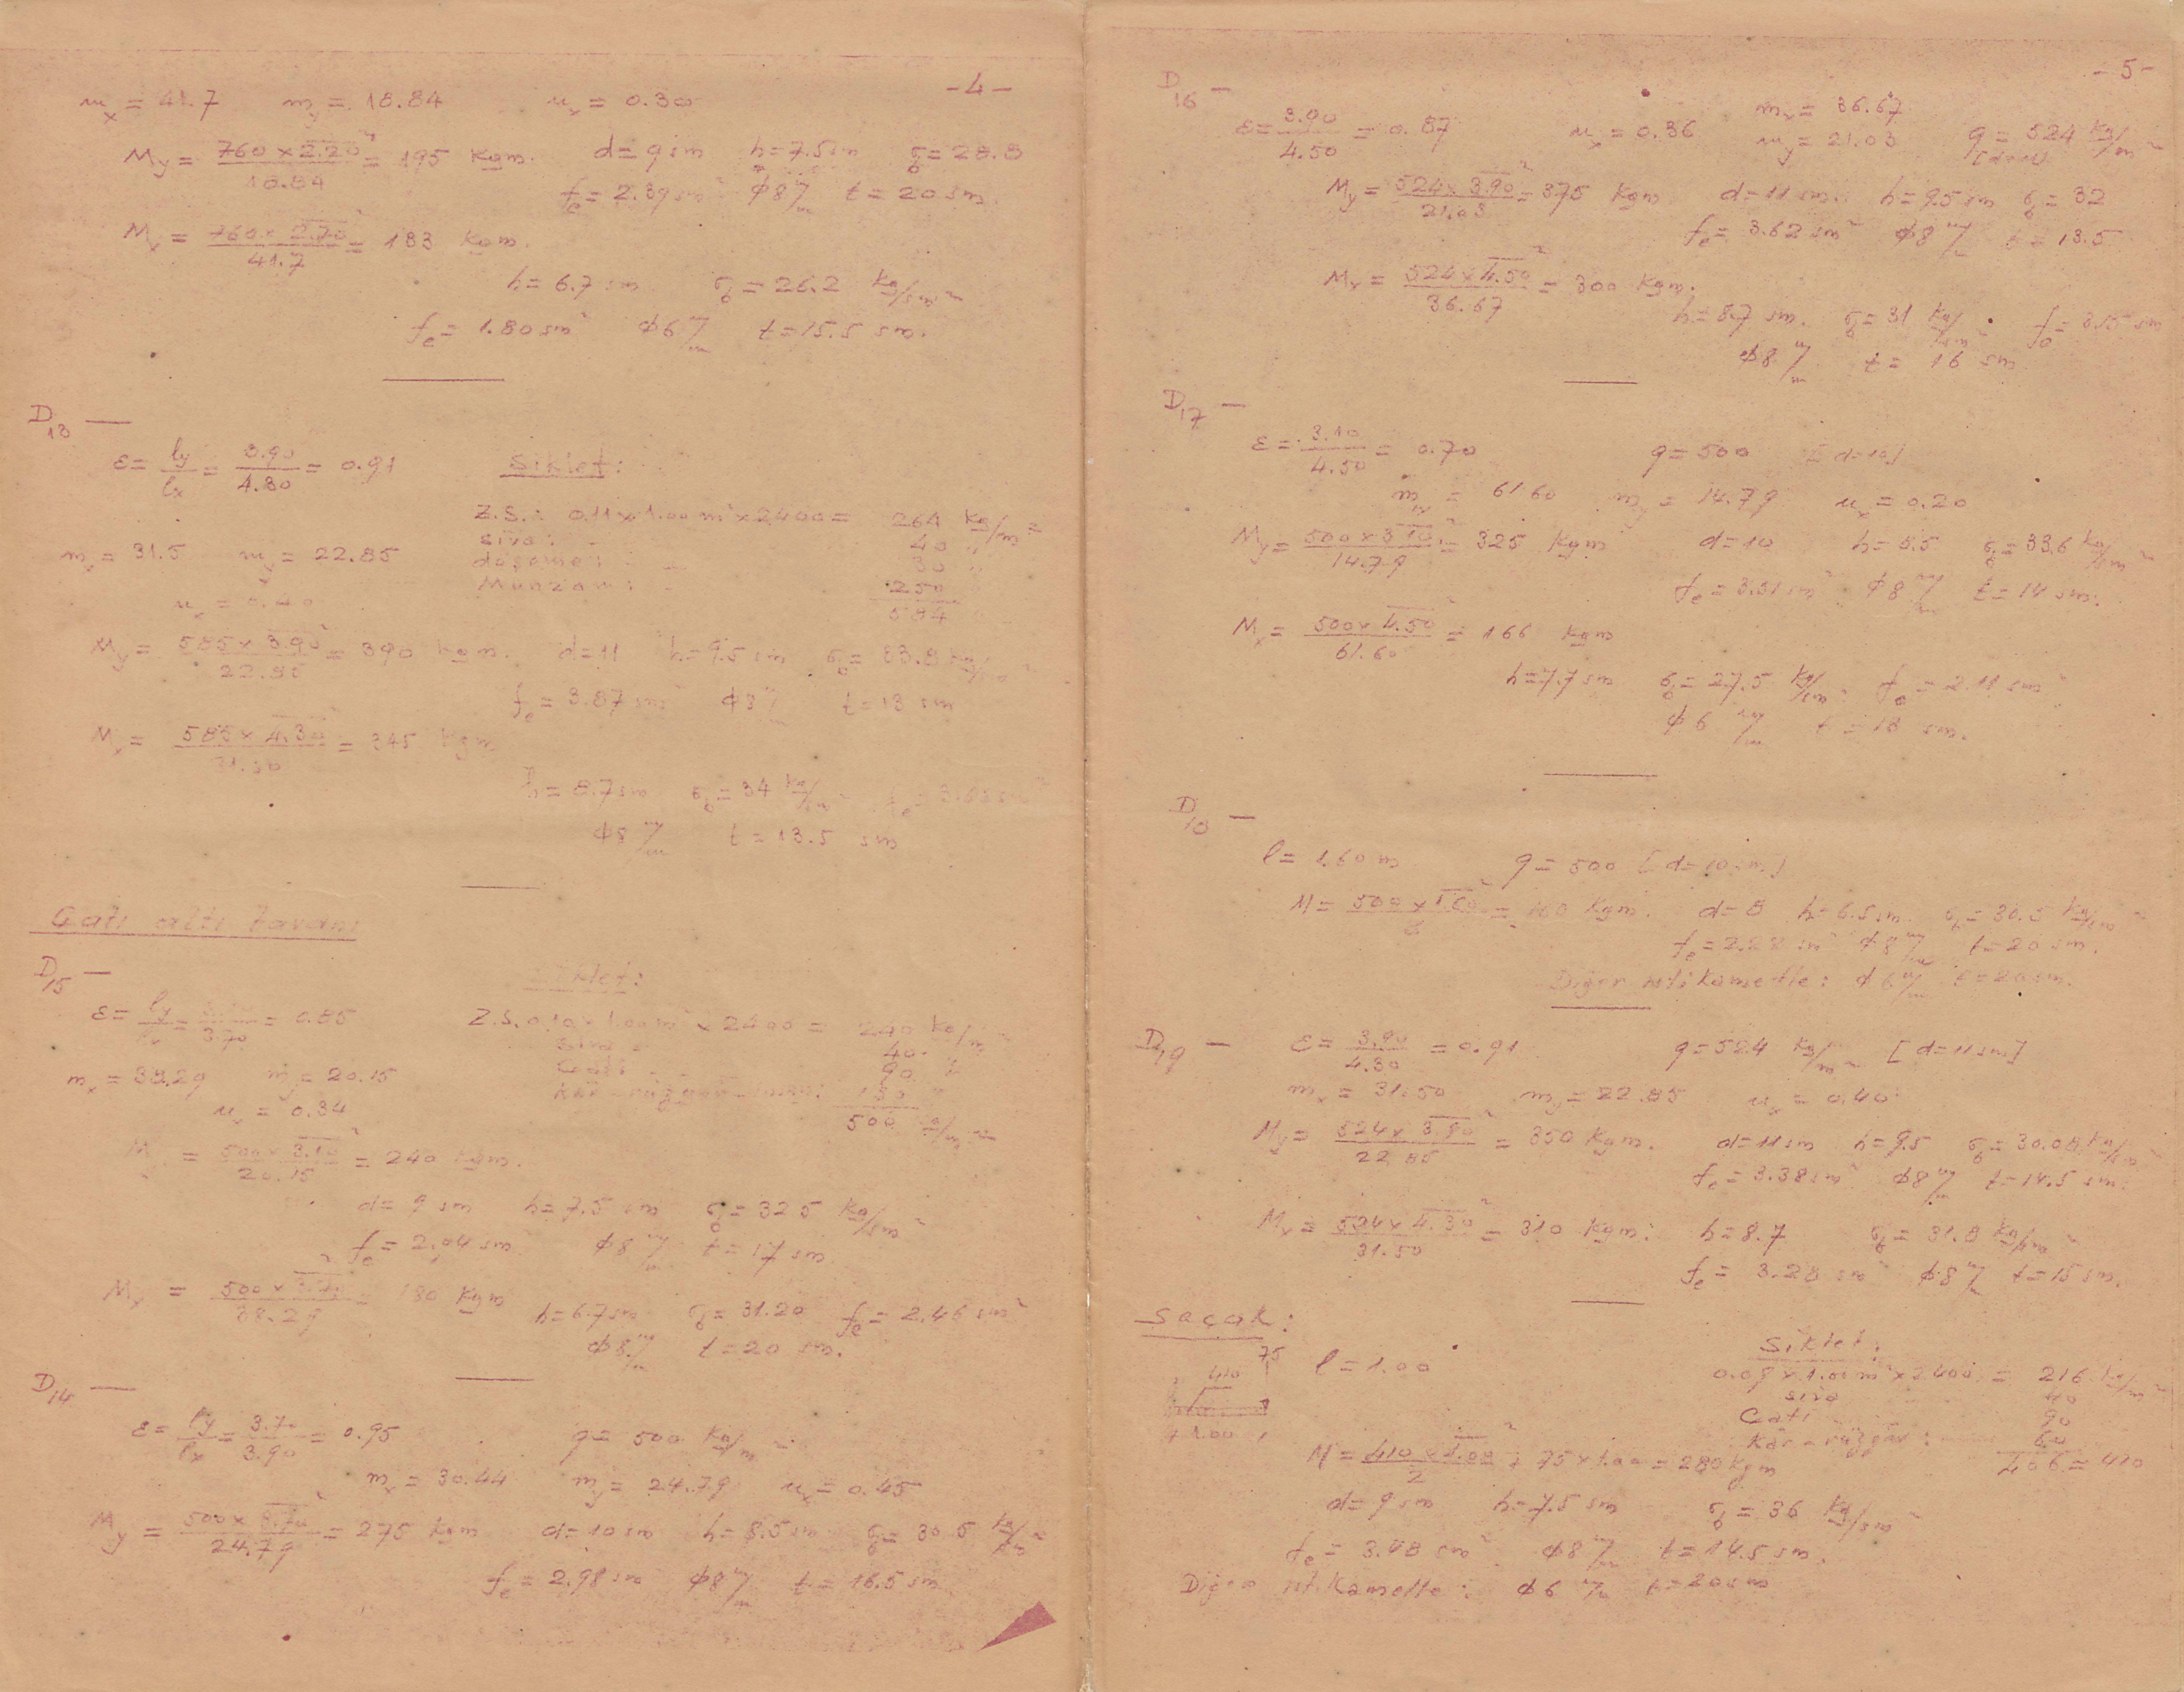 -4-
mx = 41.7 my = 18.84 ux = 0.30
My = 760 x 2.20² / 18.84 = 195 Kgm. d=9 sm h=7.5 sm σb=28.8
fe = 2.39 sm² ϕ8 m/m t=20 sm.
Mx = 760 x 2.70² / 41.7 = 133 Kgm.
h=6.7 sm σb=26.2 Kg/sm²
fe = 1.80 sm² ϕ6 m/m t=15.5 sm.
D13 —
ε = ly/lx = 3.90/4.30 = 0.91 Siklet:
Z.S.: 0.11 x 1.00 m² x 2400 = 264 Kg/m²
sıva: 40 "
mx = 31.5 my = 22.85 döşeme: 30 "
Munzam: 250
ux = 0.40 584
My = 585 x 3.90² / 22.85 = 390 Kgm. d=11 h=9.5 sm σb=33.8 kg/sm²
fe = 3.87 sm² ϕ8 m/m t=13 sm
Mx = 585 x 4.30² / 31.50 = 345 Kgm
h=8.7 sm σb=34 Kg/sm² fe=3.63 sm²
ϕ8 m/m t=13.5 sm
Çatı altı tavanı
D15 — Siklet:
ε = ly/lx = /3.70 = 0.85 Z.S. 0.10 x 1.00 m² x 2400 = 240 Kg/m²
sıva 40. "
mx = 38.29 my = 20.15 Çatı 90 "
Kar - rüzgâr 130 "
ux = 0.34 500 Kg/m²
M = 500 x 3.10² / 20.15 = 240 Kgm.
d=9 sm h=7.5 sm σb=32.5 Kg/sm²
fe = 2.94 sm ϕ8 m/m t=17 sm
Mx = 500 x 3.70² / 38.29 = 180 Kgm
h=6.7 sm σb=31.20 fe=2.46 sm²
ϕ8 m/m t=20 sm.
D14 —
ε = ly/lx = 3.70/3.90 = 0.95 q = 500 Kg/m²
mx = 30.44 my = 24.79 ux = 0.45
My = 500 x 3.70² / 24.79 = 275 Kgm d=10 sm h=8.5 sm σb=30.5 Kg/sm²
fe = 2.98 sm ϕ8 m/m t=16.5 sm
-5-
D16 —
ε = 3.90/4.50 = 0.87 ux = 0.36 mx = 36.67
my = 21.03 q = 524 Kg/m²
[d=11]
My = 524 x 3.90² / 21.03 = 375 Kgm d=11 sm. h=9.5 sm σb=32
fe = 3.62 sm² ϕ8 m/m t=13.5
Mx = 524 x 4.50² / 36.67 = 300 Kgm.
h=8.7 sm. σb=31 Kg/sm² fe=3.15 sm
ϕ8 m/m t=16 sm
D17 —
ε = 3.10/4.50 = 0.70 q=500 [d=10]
mx = 61.60 my = 14.79 ux = 0.20
My = 500 x 3.10² / 14.79 = 325 Kgm d=10 h=8.5 σb=33.6 Kg/sm²
fe = 3.31 sm² ϕ8 m/m t=14 sm.
Mx = 500 x 4.50² / 61.60 = 166 Kgm
h=7.7 sm σb=27.5 Kg/sm² fe=2.11 sm²
ϕ6 m/m t=13 sm.
D18 —
l = 1.60 m q = 500 [d=10 sm]
M = 500 x 1.60² / 8 = 160 Kgm. d=8 h=6.5 sm σb=30.5 Kg/sm²
fe = 2.28 sm² ϕ8 m/m t=20 sm.
Diğer istikamette: ϕ6 m/m t=20 sm.
D19 — ε = 3.90/4.30 = 0.91 q=524 Kg/m² [d=11 sm]
mx = 31.50 my = 22.85 ux = 0.40
My = 524 x 3.90² / 22.85 = 350 Kgm. d=11 sm h=9.5 σb=30.08 Kg/sm²
fe = 3.38 sm² ϕ8 m/m t=14.5 sm.
Mx = 524 x 4.30² / 31.50 = 310 Kgm. h=8.7 σb=31.8 Kg/sm²
fe = 3.28 sm² ϕ8 m/m t=15 sm.
Saçak:
75
410
1.00
l = 1.00 Siklet:
0.09 x 1.00 m² x 2400 = 216 Kg/m²
sıva 40
Çatı 90
Kar - rüzgâr: 60
406 = 410
M = 410 x 1.00² / 2 + 75 x 1.00 = 280 Kgm
d=9 sm h=7.5 sm σb=36 Kg/sm²
fe = 3.48 sm² ϕ8 m/m t=14.5 sm.
Diğer istikamette: ϕ6 m/m t=20 sm